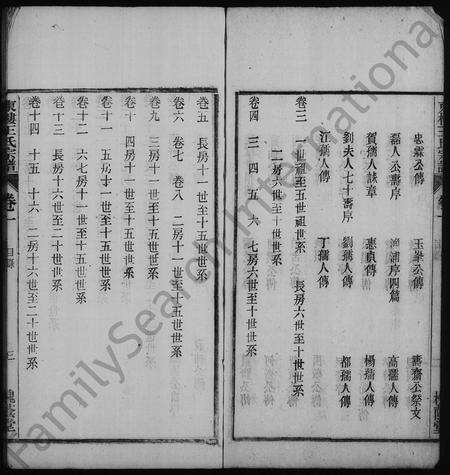 忠烈公傳 玉峯公傳 薦齋公祭文
磊人公壽序 海浦序四篇 高孺人傳
賀孺人誄章 惠貞傳 楊孺人傳
劉夫人七十壽序 劉孺人傳 都孺人傳
江孺人傳 丁孺人傳
卷三 一世祖至五世祖世系 長房六世至十世世系
二房六世至十世世系
卷四 三 四 五 六 七房六世至十世世系
卷五 長房十一世至十五世世系
卷六 卷七 卷八 二房十一世至十五世世系
卷九 三房十一世至十五世世系
卷十 四房十一世至十五世世系
卷十一 五房十一世至十五世世系
卷十二 六 七房十一世至十五世世系
卷十三 長房十六世至二十世世系
卷十四 十五 十六 二房十六世至二十世世系
東樓王氏宗譜 卷一 目錄 三
FamilySearch International